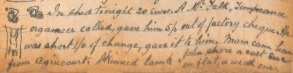 In shed tonight 20 ewes. A Mr. Falk, Temperance
organiser called, gave him 5/- out of factory cheque. He
was short 1/- of change, gave it to him. Man came home
from Agricourt. Skinned lamb & John shore a rest ewe
on flat, a weak one.